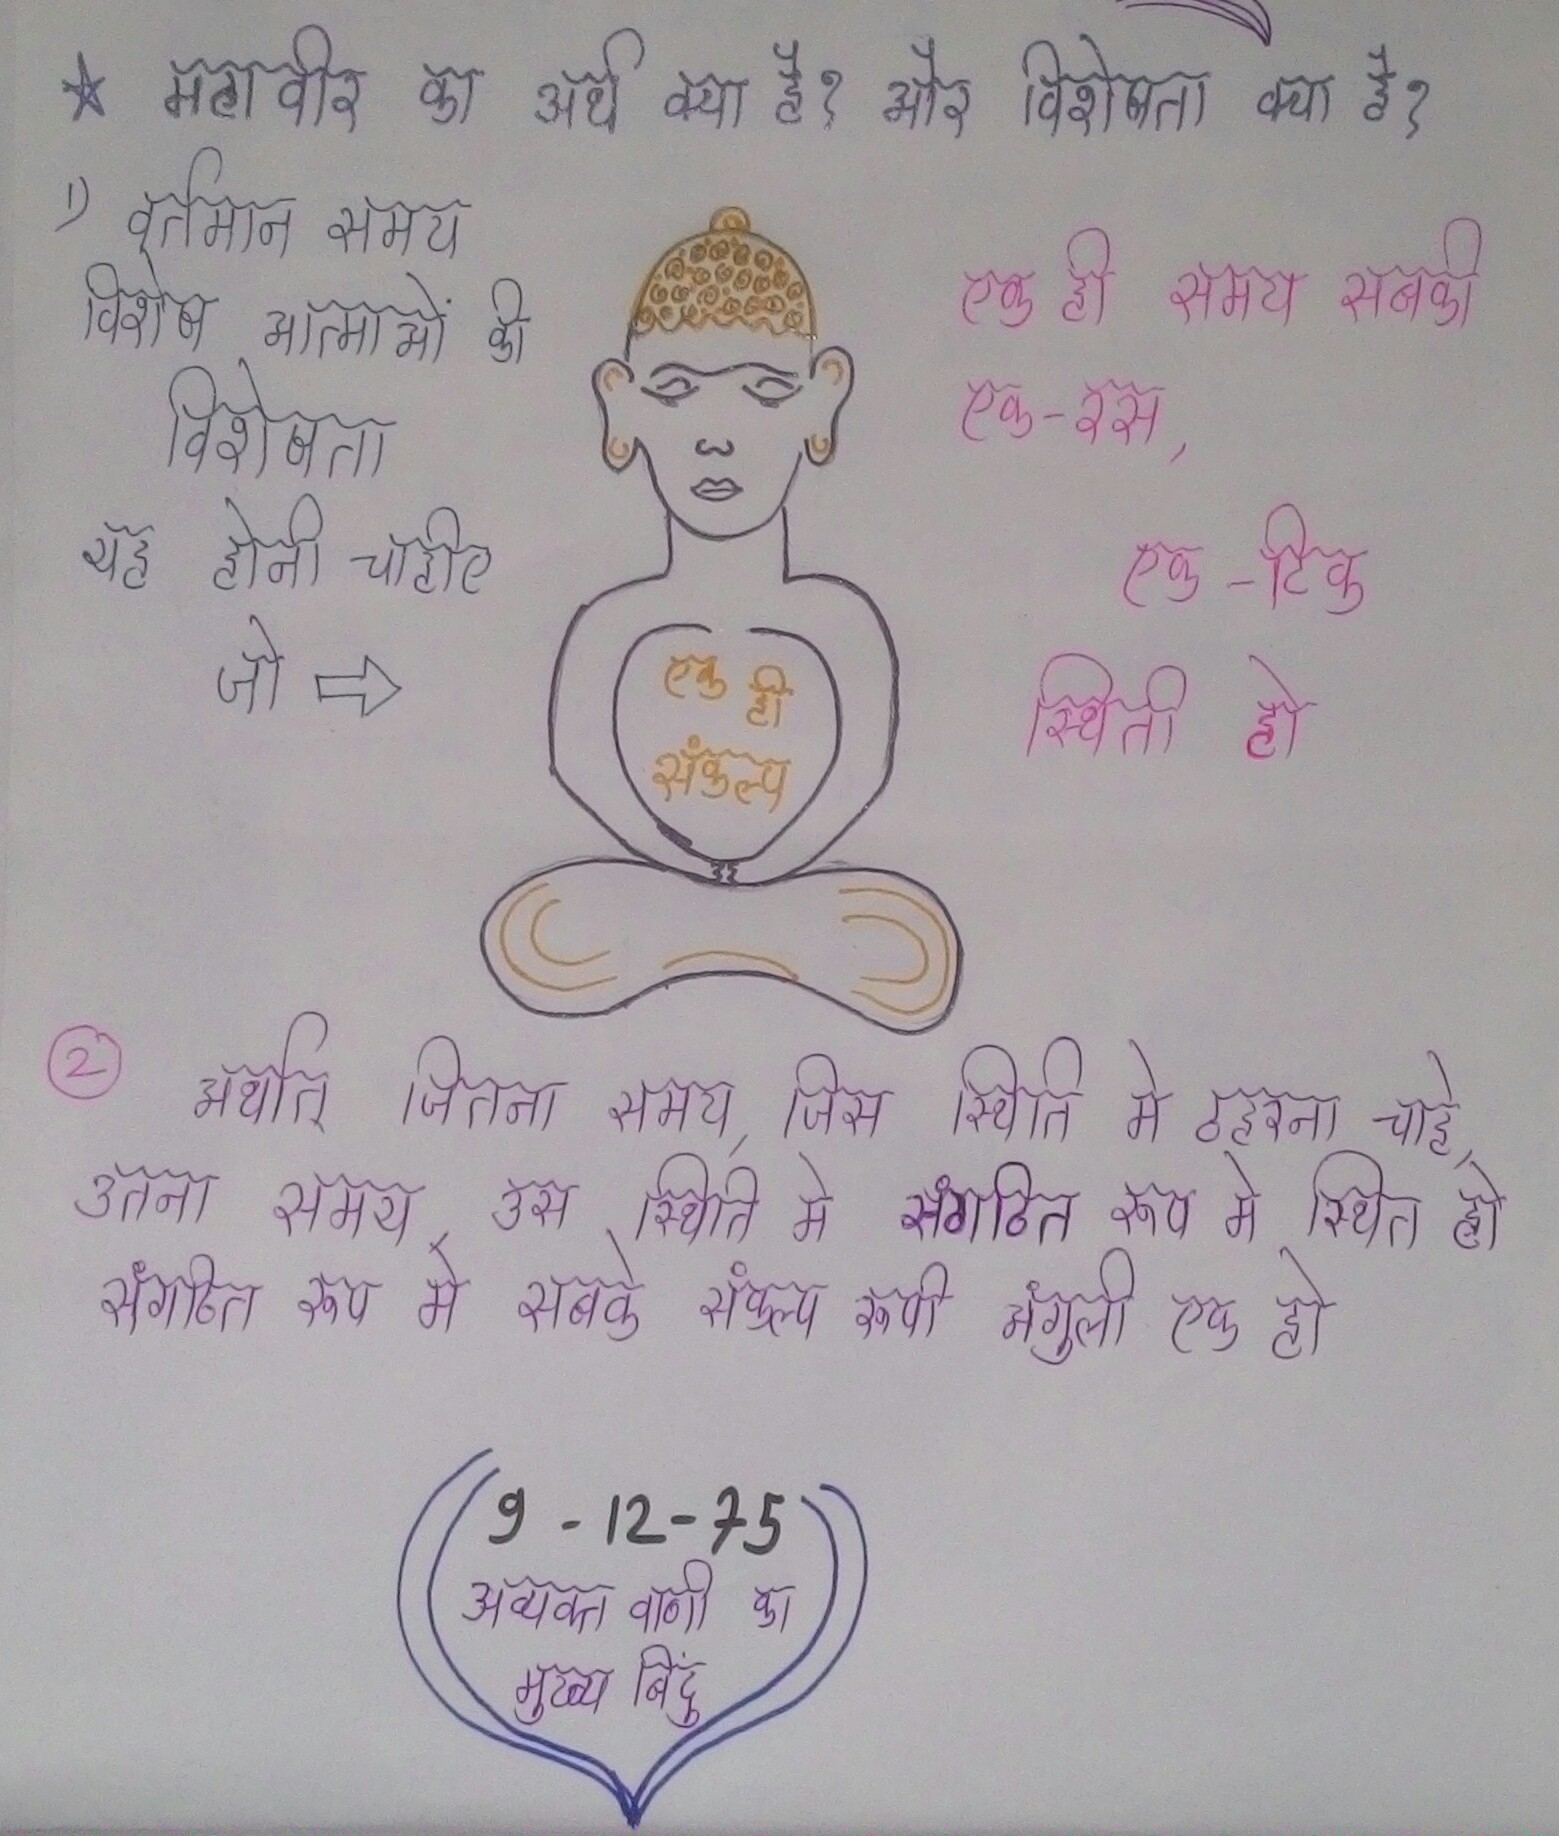 ★ महावीर का अर्थ क्या है? और विशेषता क्या है?
1) वर्तमान समय
विशेष आत्माओं की
विशेषता
यह होनी चाहीए
जो ⇨
एक ही
संकल्प
एक ही समय सबकी
एक-रस,
एक-टिक
स्थिती हो
2 अर्थात् जितना समय, जिस स्थिति मे ठहरना चाहे,
उतना समय, उस स्थिति मे संगठित रूप मे स्थित हो
संगठित रूप मे सबके संकल्प रूपी अंगुली एक हो
9-12-75
अव्यक्त वाणी का
मुख्य बिंदु